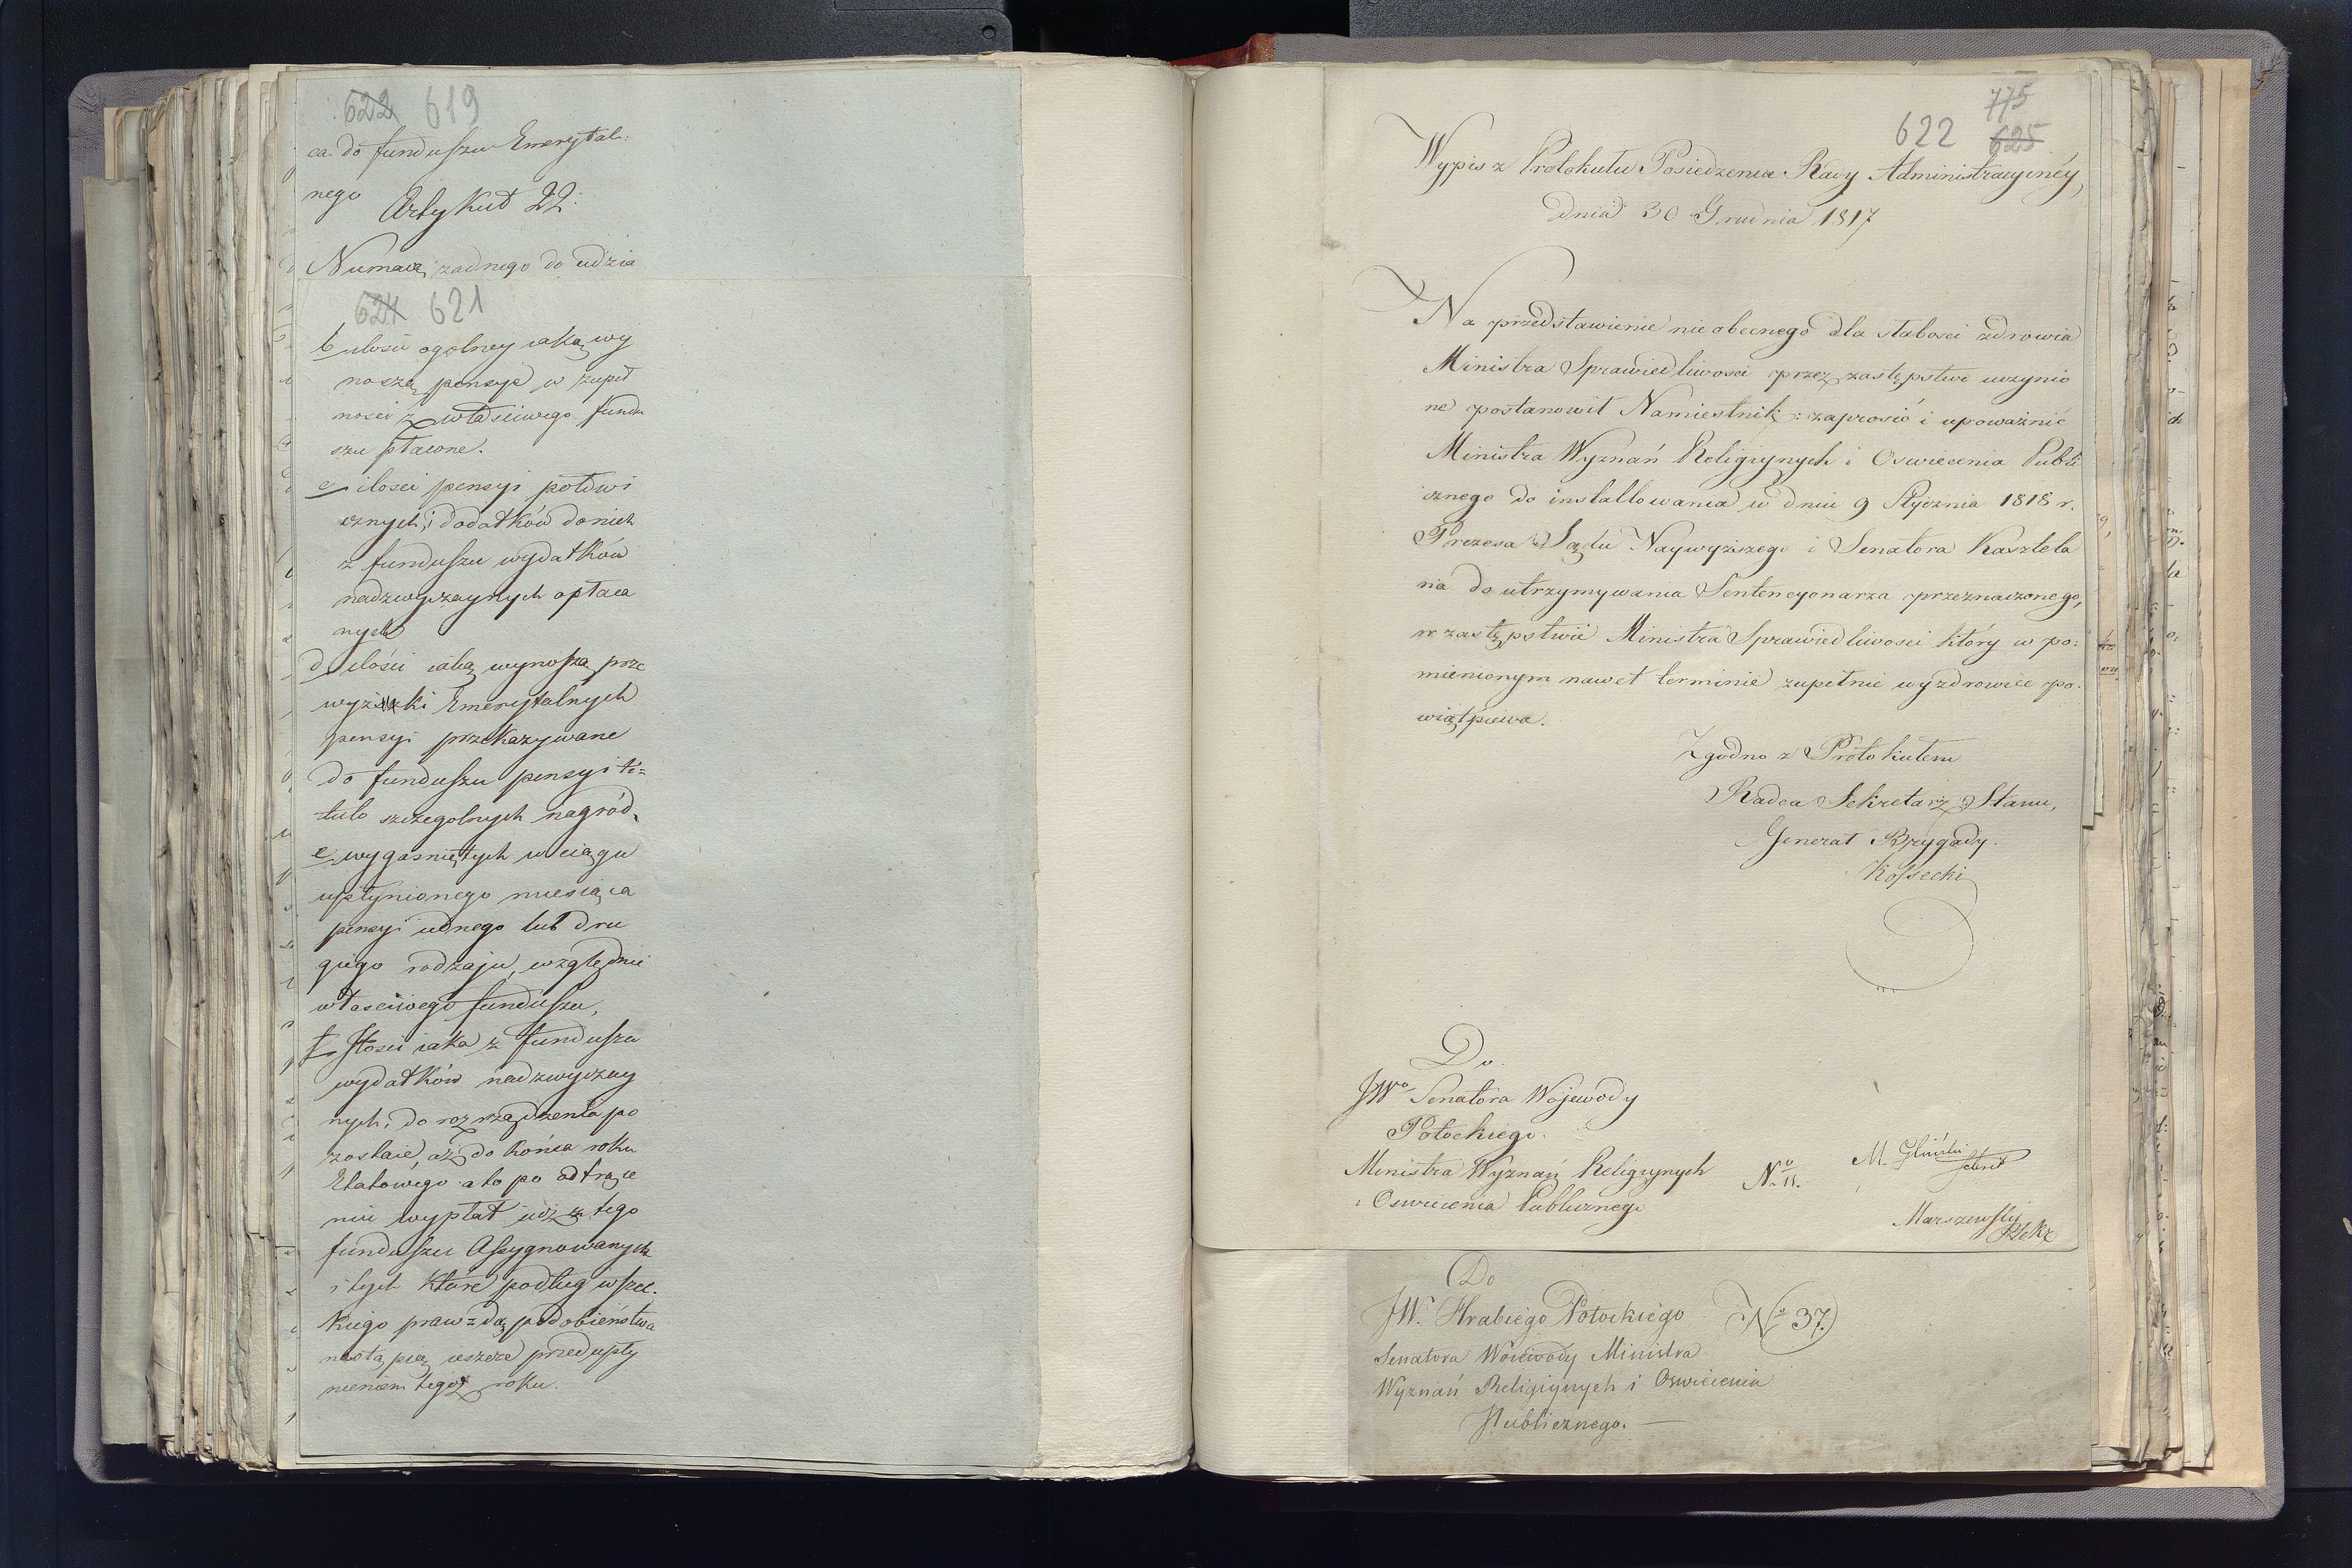 622 619
ca do funduszu Emerytal:
nego
Artykuł 22:
Niemaią żadnego do udzia
624 621
b ilości ogolney iaką wy
noszą pensye w zupeł
ności z właściwego fundu
szu płacone.
c ilości pensyi połowi
cznych, i dodatków do nich
z funduszu wydatków
nadzwyczaynych opłaca
nych
d ilości iaką wynoszą prze
wyżki Emerytalnych
pensyi przekazywane
do funduszu pensyi ti=
tulo szczegolnych nagród,
e wygasniętych w ciągu
upłynionego miesiąca
pensyi iednego lub dru
giego rodzaju, względnie
właściwego funduszu,
f Ilości iaka z funduszu
wydatków nadzwyczay
nych, do rozrządzenia po
zostaie, aż do końca roku
Etatowego a to po odtrące
niu wypłat iuż z tego
funduszu Assygnowanych
i tych które podług wszel.
kiego praw=dą podobieństwa
nastąpią ieszcze przed upły
nieniem tegoż roku.
775
622 625
Wypis z Protokułu Posiedzenia Rady Administracyiney,
dnia 30 Grudnia 1817
Na przedstawienie nieobecnego dla słabości zdrowia
Ministra Sprawiedliwości przez zastępstwo uczynio
ne postanowił Namiestnik: zaprosić i upoważnić
Ministra Wyznań Religiynych i Oswiecenia Publi
cznego do installowania w dniu 9 Stycznia 1818 r.
Prezesa Sądu Naywyższego i Senatora Kasztela
na do utrzymywania Sentencyonarza przeznaczonego,
w zastępstwie Ministra Sprawiedliwości który w po:
mienionym nawet terminie zupełnie wyzdrowieć po.
wiątpiewa.
Zgodno z Protokułem
Radca Sekretarz Stanu,
Generał Brygady.
Kossecki
Do
JWo Senatora Wojewody
Potockiego.
Ministra Wyznań Religiynych
i Oswiecenia Publicznego
No 11.
M. Gliński
Marszewski
Do
JW. Hrabiego Potockiego No 37.
Senatora Woiewody Ministra
Wyznań Religiynych i Oswiecenia
Publicznego.